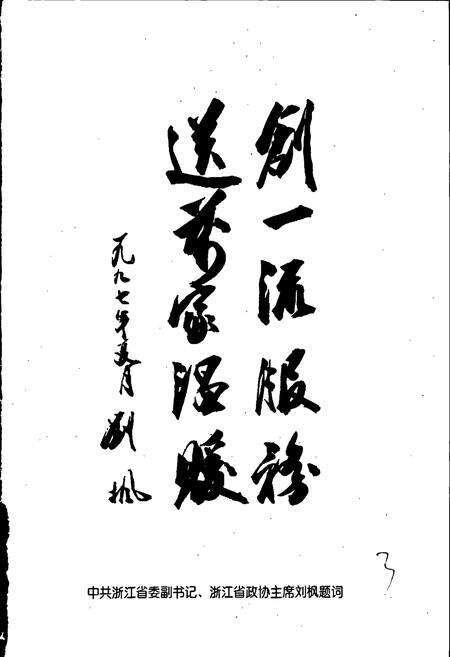 創一流服務
送萬家温暖
一九九七年五月 劉楓
3
中共浙江省委副书记、浙江省政协主席刘枫题词